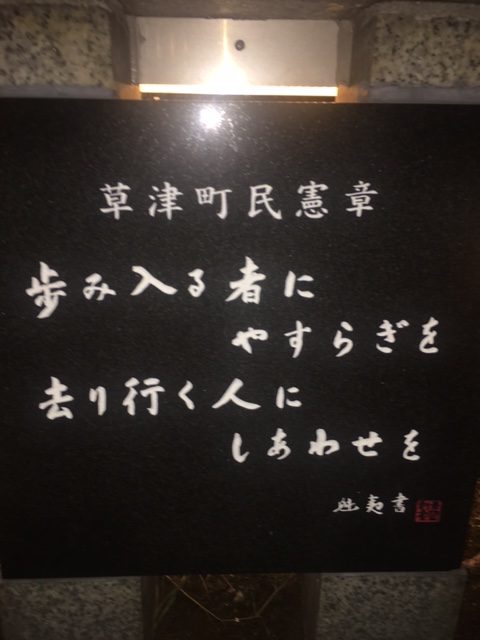 草津町民憲章
歩み入る者に
やすらぎを
去り行く人に
しあわせを
魁夷書